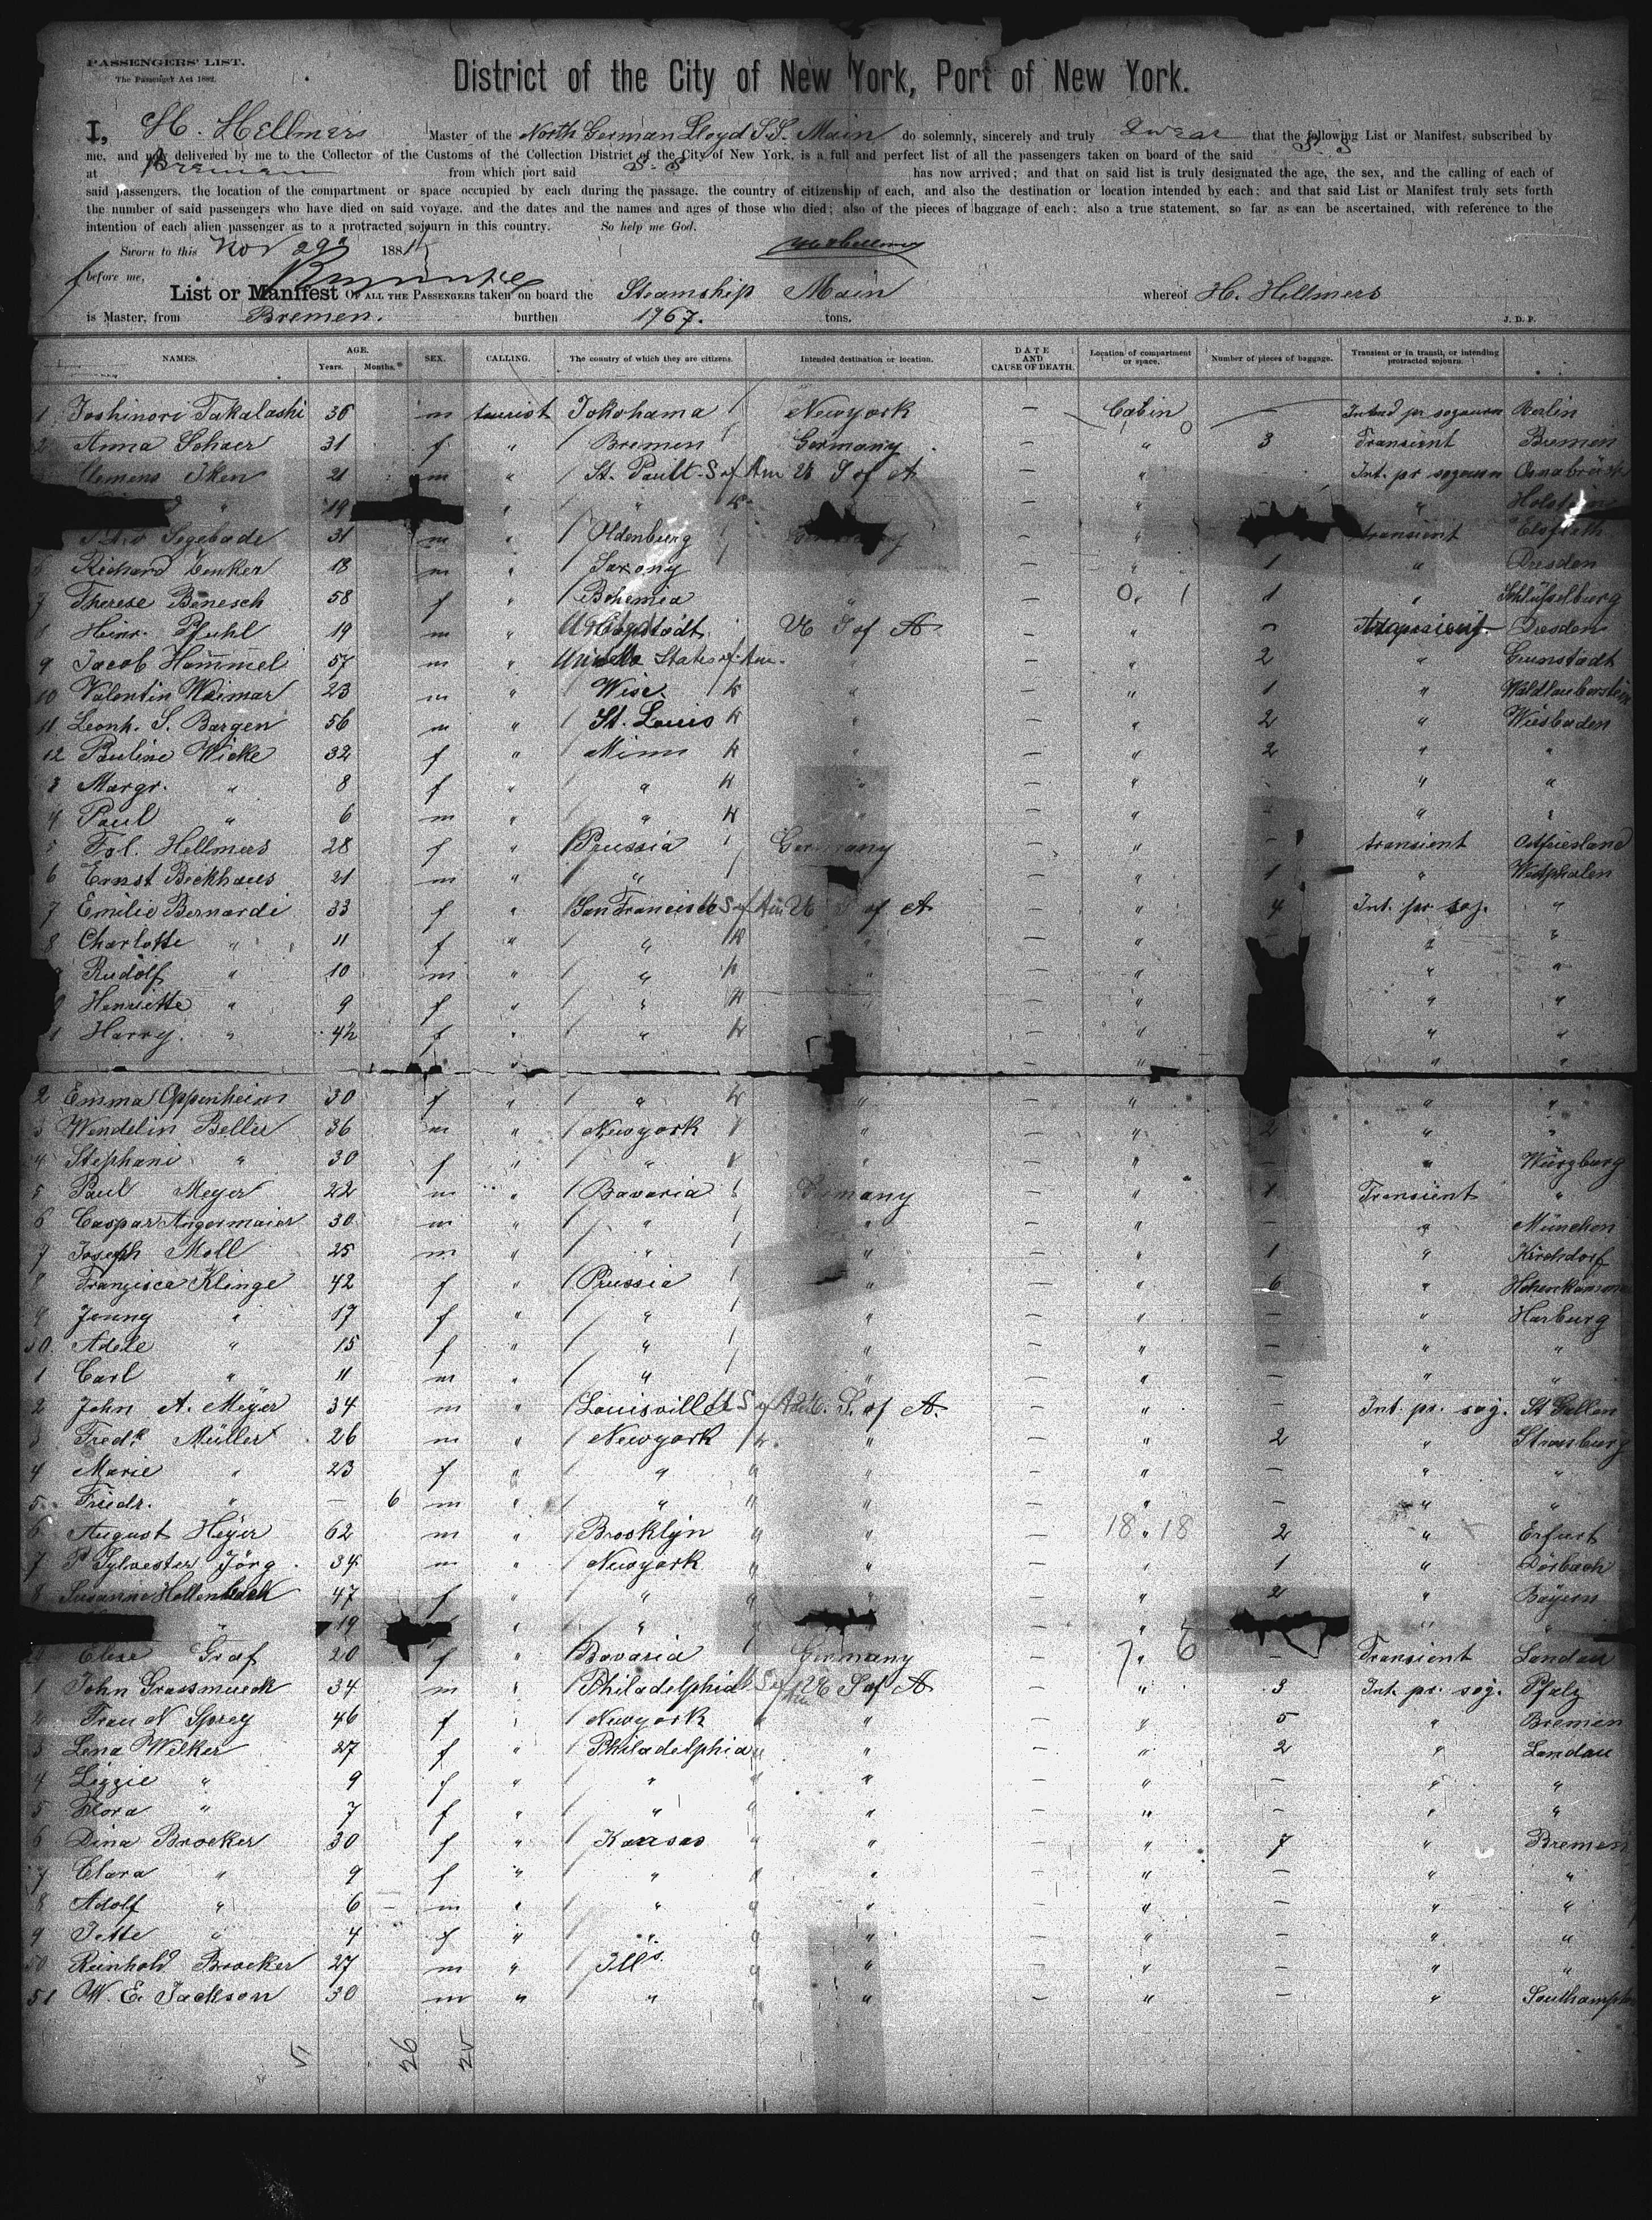 PASSENGERS' LIST.
The Passenger Act 1882.
District of the City of New York, Port of New York.
I, H. Hellmers Master of the North German Lloyd S.S. Main do solemnly, sincerely and truly swear that the following List or Manifest, subscribed by
me, and now delivered by me to the Collector of the Customs of the Collection District of the City of New York, is a full and perfect list of all the passengers taken on board of the said S. S
at Bremen from which port said S. S has now arrived; and that on said list is truly designated the age, the sex, and the calling of each of
said passengers, the location of the compartment or space occupied by each during the passage, the country of citizenship of each, and also the destination or location intended by each; and that said List or Manifest truly sets forth
the number of said passengers who have died on said voyage, and the dates and the names and ages of those who died; also of the pieces of baggage of each; also a true statement, so far as can be ascertained, with reference to the
intention of each alien passenger as to a protracted sojourn in this country. So help me God.
Sworn to this Nov 29 188
before me,
List or Manifest OF ALL THE PASSENGERS taken on board the Steamship Main whereof H. Hellmers
is Master, from Bremen. burthen 1967. tons. J. D. P.
NAMES. AGE. Years. Months. SEX. CALLING. The country of which they are citizens. Intended destination or location. DATE AND CAUSE OF DEATH. Location of compartment or space. Number of pieces of baggage. Transient or in transit, or intending protracted sojourn.
1 Toshinori Takalashi 36 m tourist Yokohama Newyork — Cabin — Berlin
2 Anna Schaer 31 f " Bremen Germany — " 3 Transient Bremen
Clemens Iken 21 m " St. Pault - S of Am U S of A — " Int. pr sogourn Osnabrück
" 19 " " — " "
Segebade 31 m " Oldenburg — " transient Elsfleth
6 Richard Denker 18 m " Saxony — " 1 " Dresden
7 Therese Benesch 58 f " Bohemia " — " 1 "
8 Heinr. Pfuhl 19 m " U S of A — " — Dresden
9 Jacob Hammel 57 m " States of Am. " — " 2 " Grunstadt
10 Valentin Weimar 23 m " Wisc. " — " 1 "
11 Leonh. S. Bargen 56 m " St. Louis " — " 2 " Wiesbaden
12 Pauline Wicke 32 f " Minn " — " 2 " "
3 Margr. " 8 f " " " — " - " "
4 Paul " 6 m " " " — " - " "
5 Frl. Hellmers 28 f " Prussia Germany — " - transient Ostfriesland
6 Ernst Beckhaus 21 m " " — " 1 " Westphalen
7 Emilie Bernardi 33 f " San Francisco U S of Am U S of A — " 4 Int. pr soj. "
8 Charlotte " 11 f " " " — " " "
9 Rudolf " 10 m " " " — " " "
0 Henriette " 9 f " " — " " "
1 Harry " 4½ f " " — " " "
2 Emma Oppenheim 30 f " " " — " " "
3 Wendelin Beller 36 m " Newyork " — " 2 " "
4 Stephani " 30 f " " " — " - " Würzburg
5 Paul Meyer 22 m " Bavaria Germany — " 1 Transient "
6 Caspar Angermaier 30 m " " " — " - " München
7 Joseph Moll 25 m " " " — " 1 " Kirchdorf
8 Franzisca Klinge 42 f " Prussia " — " 6 "
9 Jenny " 17 f " " " — " - " Harburg
30 Adele " 15 f " " " — " - " "
1 Carl " 11 m " " " — " - " "
2 John A. Meyer 34 m " Louisville U S of A U. S. of A. — " - Int. pr. soj. St Gallen
3 Fredk Müller 26 m " Newyork " — " 2 " Strassburg
4 Marie " 23 f " " " — " - " "
5 Friedr. " — 6 m " " " — " - " "
6 August Heyer 62 m " Brooklyn " — 18 " 18 2 " Erfurt
7 P Sylvester Jörg 34 m " Newyork " — " 1 "
8 Susanne Hellenbach 47 f " " " — " 2 " Bayern
" 19 " " — " " "
Elise Graf 20 f " Bavaria Germany — 7 " 6 - Transient Landau
1 John Grassmueck 34 m " Philadelphia U S of Am U S of A — " 3 Int. pr. soj. Pfalz
2 Frau N Sprey 46 f " Newyork " — " 5 " Bremen
3 Lena Welker 27 f " Philadelphia " — " 2 " Landau
4 Lizzie " 9 f " " " — " - " "
5 Flora " 7 f " " " — " - " "
6 Dina Brocker 30 f " Kansas " — " 7 " Bremen
7 Clara " 9 f " " " — " - " "
8 Adolf " 6 — m " " " — " - " "
9 Jette " 4 f " " " — " - " "
50 Reinhold Brocker 27 m " Ills. " — " - " "
51 W. E. Jackson 30 m " " " — " - " Southampton
51 26 25